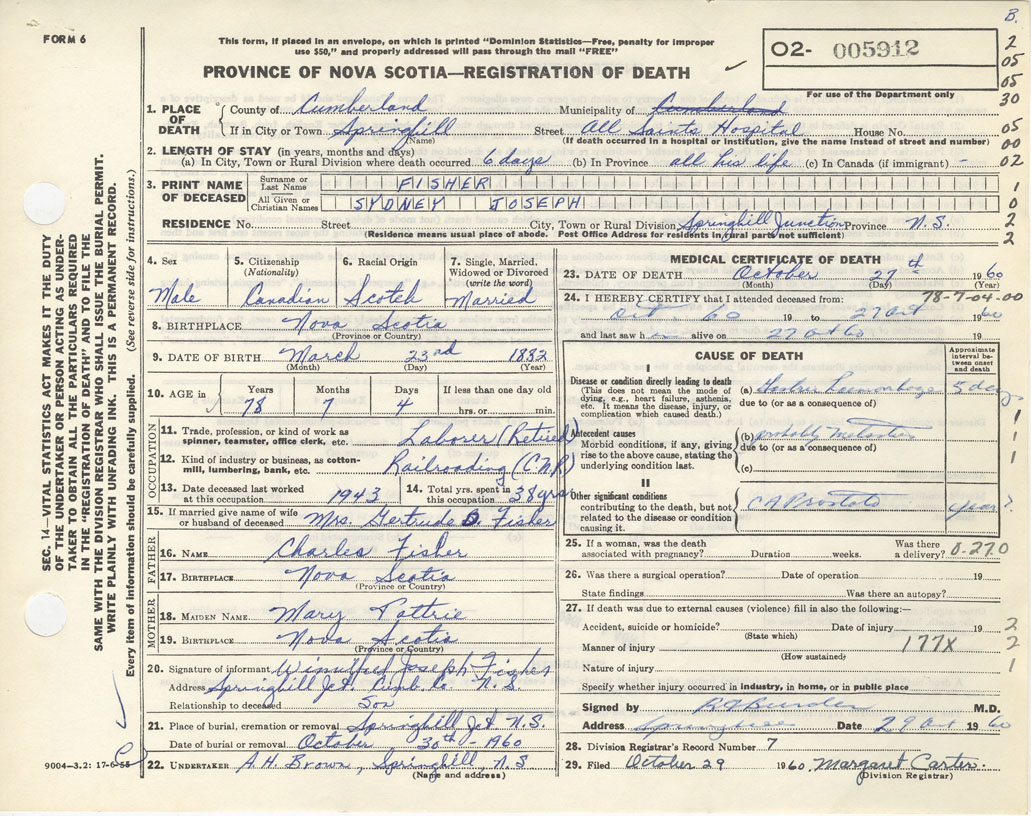 B.
FORM 6
This form, if placed in an envelope, on which is printed "Dominion Statistics—Free, penalty for improper
use $50," and properly addressed will pass through the mail "FREE"
PROVINCE OF NOVA SCOTIA—REGISTRATION OF DEATH
O2- 005912
For use of the Department only
2
05
05
30
1. PLACE OF DEATH County of Cumberland Municipality of Cumberland
If in City or Town Springhill Street All Saints Hospital House No. 05
(Name) (If death occurred in a hospital or Institution, give the name instead of street and number) 00
2. LENGTH OF STAY (in years, months and days)
(a) In City, Town or Rural Division where death occurred 6 days (b) In Province all his life (c) In Canada (if immigrant) - 02
3. PRINT NAME OF DECEASED Surname or Last Name FISHER 1
All Given or Christian Names SYDNEY JOSEPH 0
RESIDENCE No. Street City, Town or Rural Division Springhill Junction Province N.S. 2
(Residence means usual place of abode. Post Office Address for residents in rural parts not sufficient) 2
4. Sex Male
5. Citizenship (Nationality) Canadian
6. Racial Origin Scotch
7. Single, Married, Widowed or Divorced (write the word) Married
8. BIRTHPLACE Nova Scotia
(Province or Country)
9. DATE OF BIRTH March 23rd 1882
(Month) (Day) (Year)
10. AGE in Years 78 Months 7 Days 4 If less than one day old hrs. or min.
OCCUPATION
11. Trade, profession, or kind of work as spinner, teamster, office clerk, etc. Laborer (Retired)
12. Kind of industry or business, as cotton-mill, lumbering, bank, etc. Railroading (C.N.R)
13. Date deceased last worked at this occupation 1943 14. Total yrs. spent in this occupation 38 yrs
15. If married give name of wife or husband of deceased Mrs. Gertrude S. Fisher
FATHER
16. NAME Charles Fisher
17. BIRTHPLACE Nova Scotia
(Province or Country)
MOTHER
18. MAIDEN NAME Mary Pattrie
19. BIRTHPLACE Nova Scotia
(Province or Country)
20. Signature of informant Joseph Fisher
Address Springhill Jct. Cumb. Co. N.S.
Relationship to deceased Son
21. Place of burial, cremation or removal Springhill Jct. N.S.
Date of burial or removal October 30th - 1960
22. UNDERTAKER A.H. Brown, Springhill, N.S
(Name and address)
MEDICAL CERTIFICATE OF DEATH
23. DATE OF DEATH October 27th 1960
(Month) (Day) (Year)
78-7-04-00
24. I HEREBY CERTIFY that I attended deceased from:
Oct. 60 19 to 27 Oct 1960
and last saw h alive on 27 Oct 60 19
CAUSE OF DEATH
Approximate interval between onset and death
I
Disease or condition directly leading to death
(This does not mean the mode of dying, e.g., heart failure, asthenia, etc. It means the disease, injury, or complication which caused death.)
(a) 5 days
due to (or as a consequence of)
Antecedent causes
Morbid conditions, if any, giving rise to the above cause, stating the underlying condition last.
(b) probably
due to (or as a consequence of)
(c)
1
1
1
1
II
Other significant conditions contributing to the death, but not related to the disease or condition causing it.
CA Prostate years?
25. If a woman, was the death associated with pregnancy? Duration weeks. Was there a delivery? 0-270
26. Was there a surgical operation? Date of operation 19
State findings Was there an autopsy?
27. If death was due to external causes (violence) fill in also the following:—
Accident, suicide or homicide? Date of injury 19 2
(State which)
Manner of injury 177X 2
(How sustained?)
Nature of injury 1
Specify whether injury occurred in industry, in home, or in public place
Signed by M.D.
Address Springhill Date 29 Oct 1960
28. Division Registrar's Record Number 7
29. Filed October 29 1960. Margaret Carter.
(Division Registrar)
SEC. 14—VITAL STATISTICS ACT MAKES IT THE DUTY
OF THE UNDERTAKER OR PERSON ACTING AS UNDER-
TAKER TO OBTAIN ALL THE PARTICULARS REQUIRED
IN THE "REGISTRATION OF DEATH" AND TO FILE THE
SAME WITH THE DIVISION REGISTRAR WHO SHALL ISSUE THE BURIAL PERMIT.
WRITE PLAINLY WITH UNFADING INK. THIS IS A PERMANENT RECORD.
Every item of information should be carefully supplied. (See reverse side for instructions.)
9004-3.2: 17-6-55